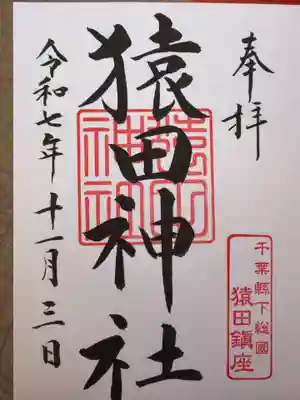 奉拝
猿田神社
令和七年十一月三日
猿田
神社
千葉縣下総國
猿田鎮座